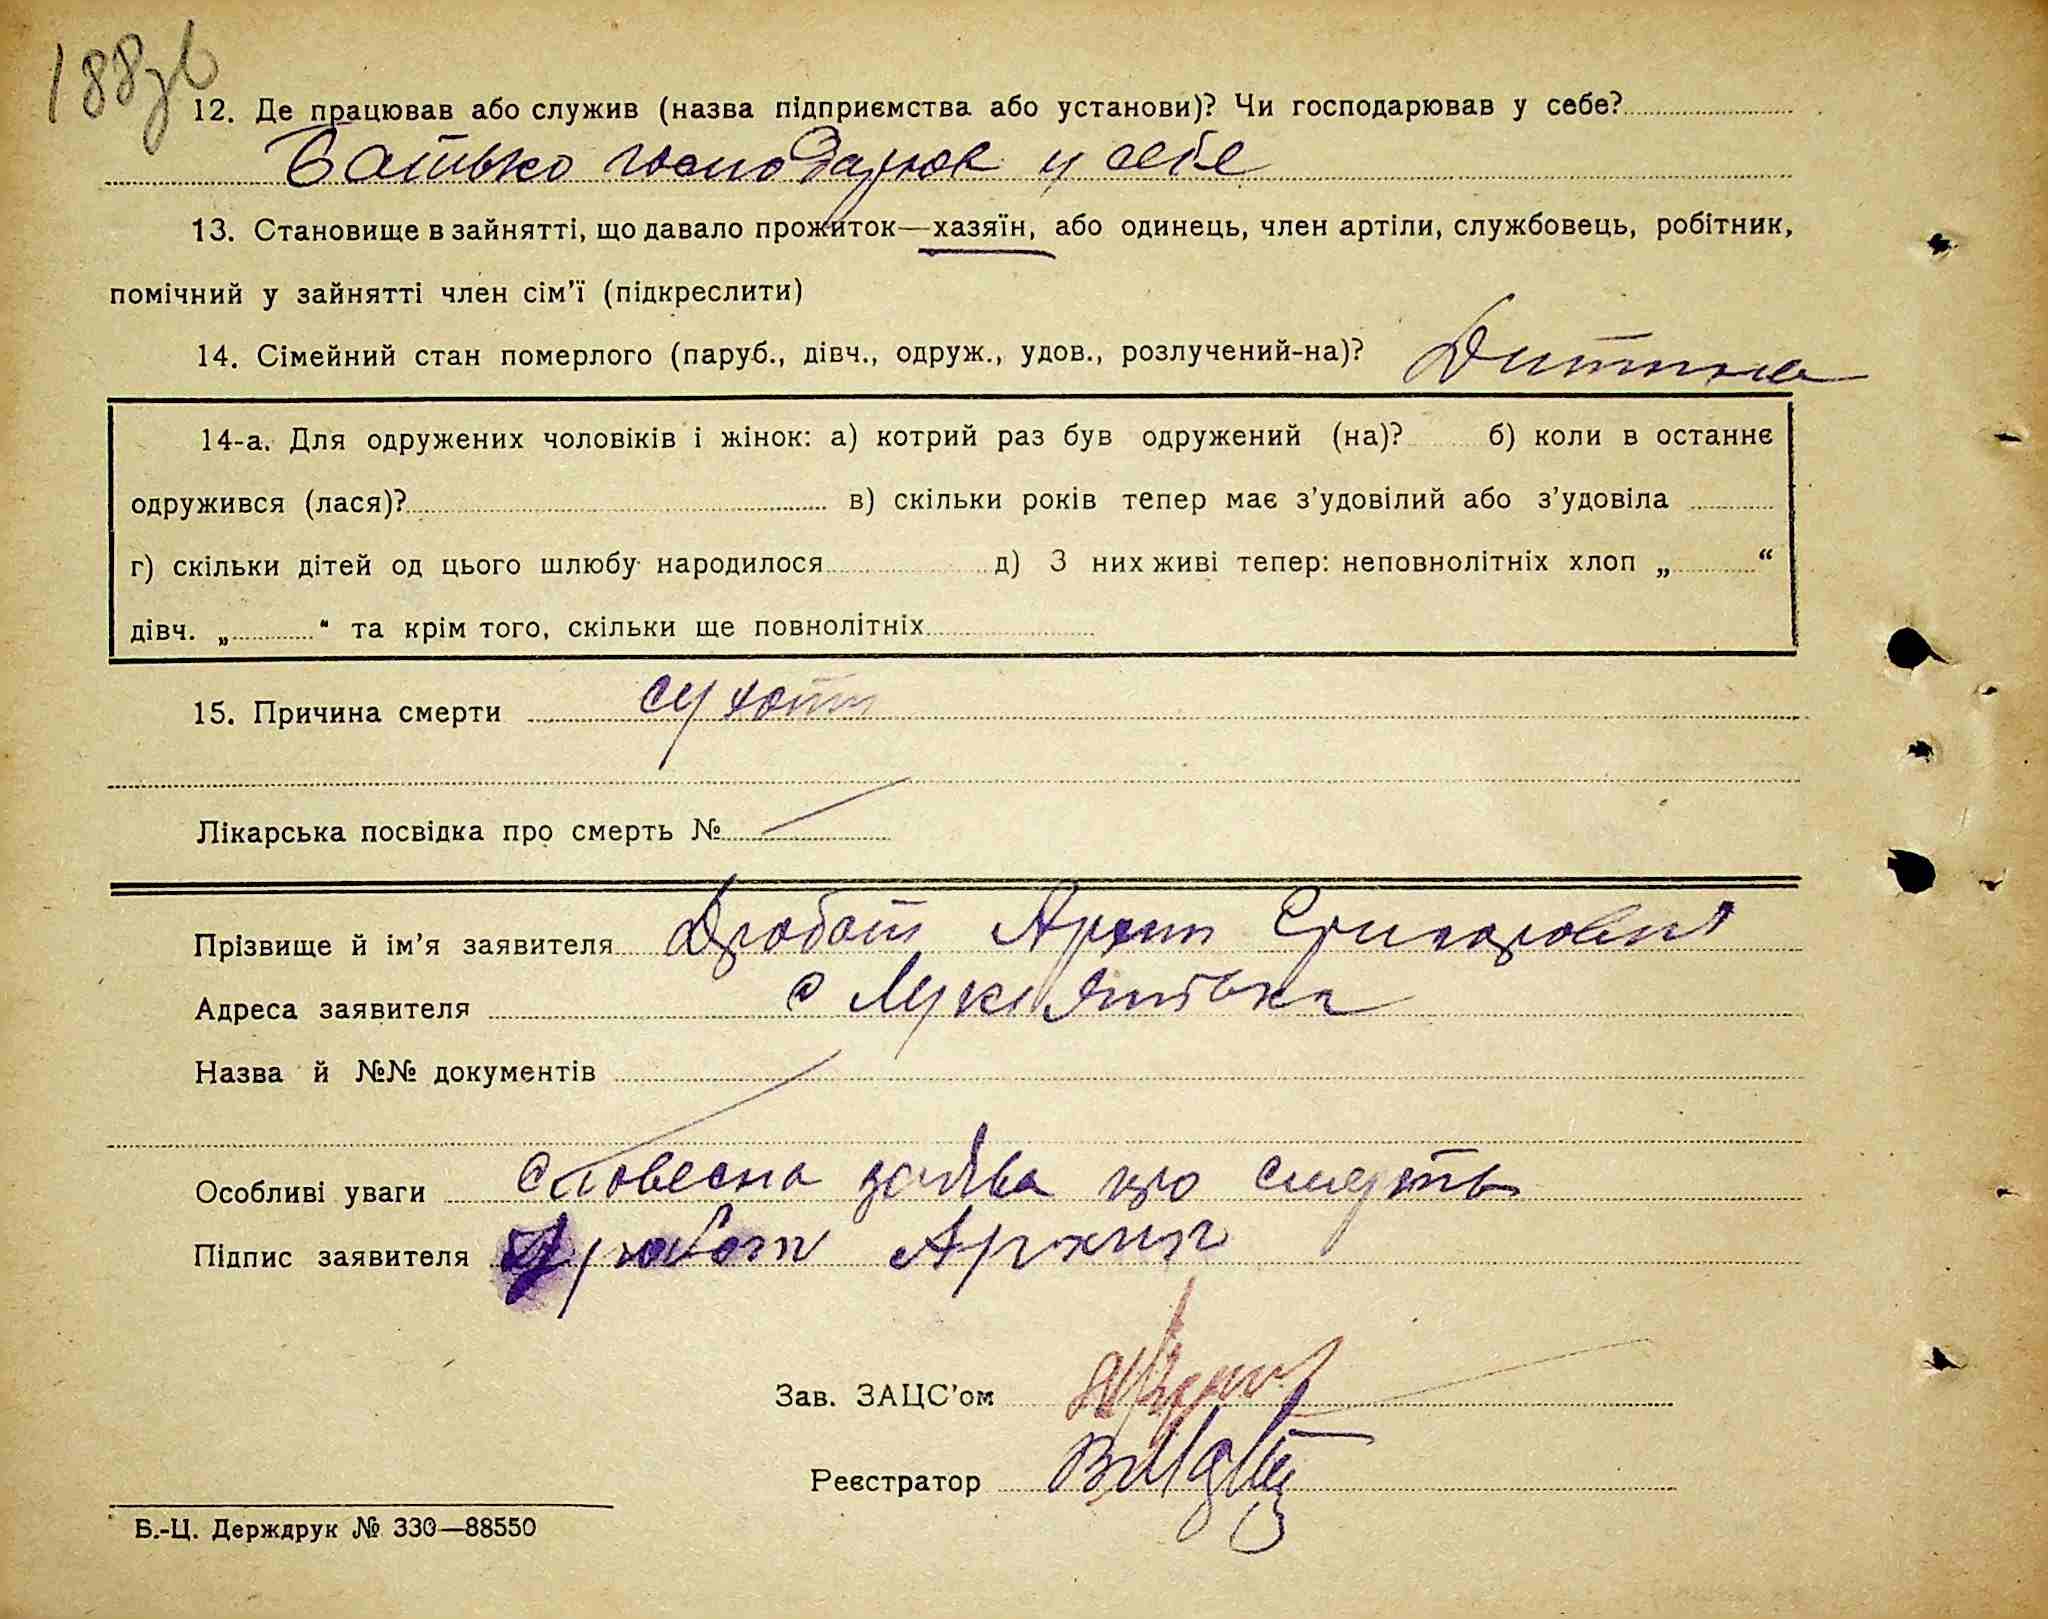 188зв
12. Де працював або служив (назва підприємства або установи)? Чи господарював у себе?
Батько господарює у себе
13. Становище в зайнятті, що давало прожиток—хазяїн, або одинець, член артіли, службовець, робітник,
помічний у зайнятті член сім'ї (підкреслити)
14. Сімейний стан померлого (паруб., дівч., одруж., удов., розлучений-на)? Дитина
14-а. Для одружених чоловіків і жінок: а) котрий раз був одружений (на)? б) коли в останнє
одружився (лася)? в) скільки років тепер має з'удовілий або з'удовіла
г) скільки дітей од цього шлюбу народилося д) З них живі тепер: неповнолітніх хлоп „ “
дівч. „ “ та крім того, скільки ще повнолітніх
15. Причина смерти сухоти
Лікарська посвідка про смерть №
Прізвище й ім'я заявителя Дробот Архип Григорович
Адреса заявителя с Лук'янівка
Назва й №№ документів
Особливі уваги словесна заява про смерть
Підпис заявителя Дробот Архип
Зав. ЗАЦС'ом
Реєстратор
Б.-Ц. Держдрук № 330—88550